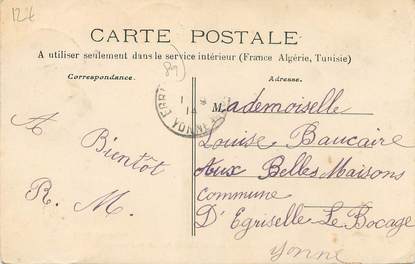 12t
CARTE POSTALE
A utiliser seulement dans le service intérieur (France Algérie, Tunisie)
(89)
Correspondance.
Adresse.
YONNE
Mademoiselle
Louise Baucaire
Aux Belles Maisons
Commune
D'Egriselle Le Bocage
Yonne
A
Bientôt
R. M.